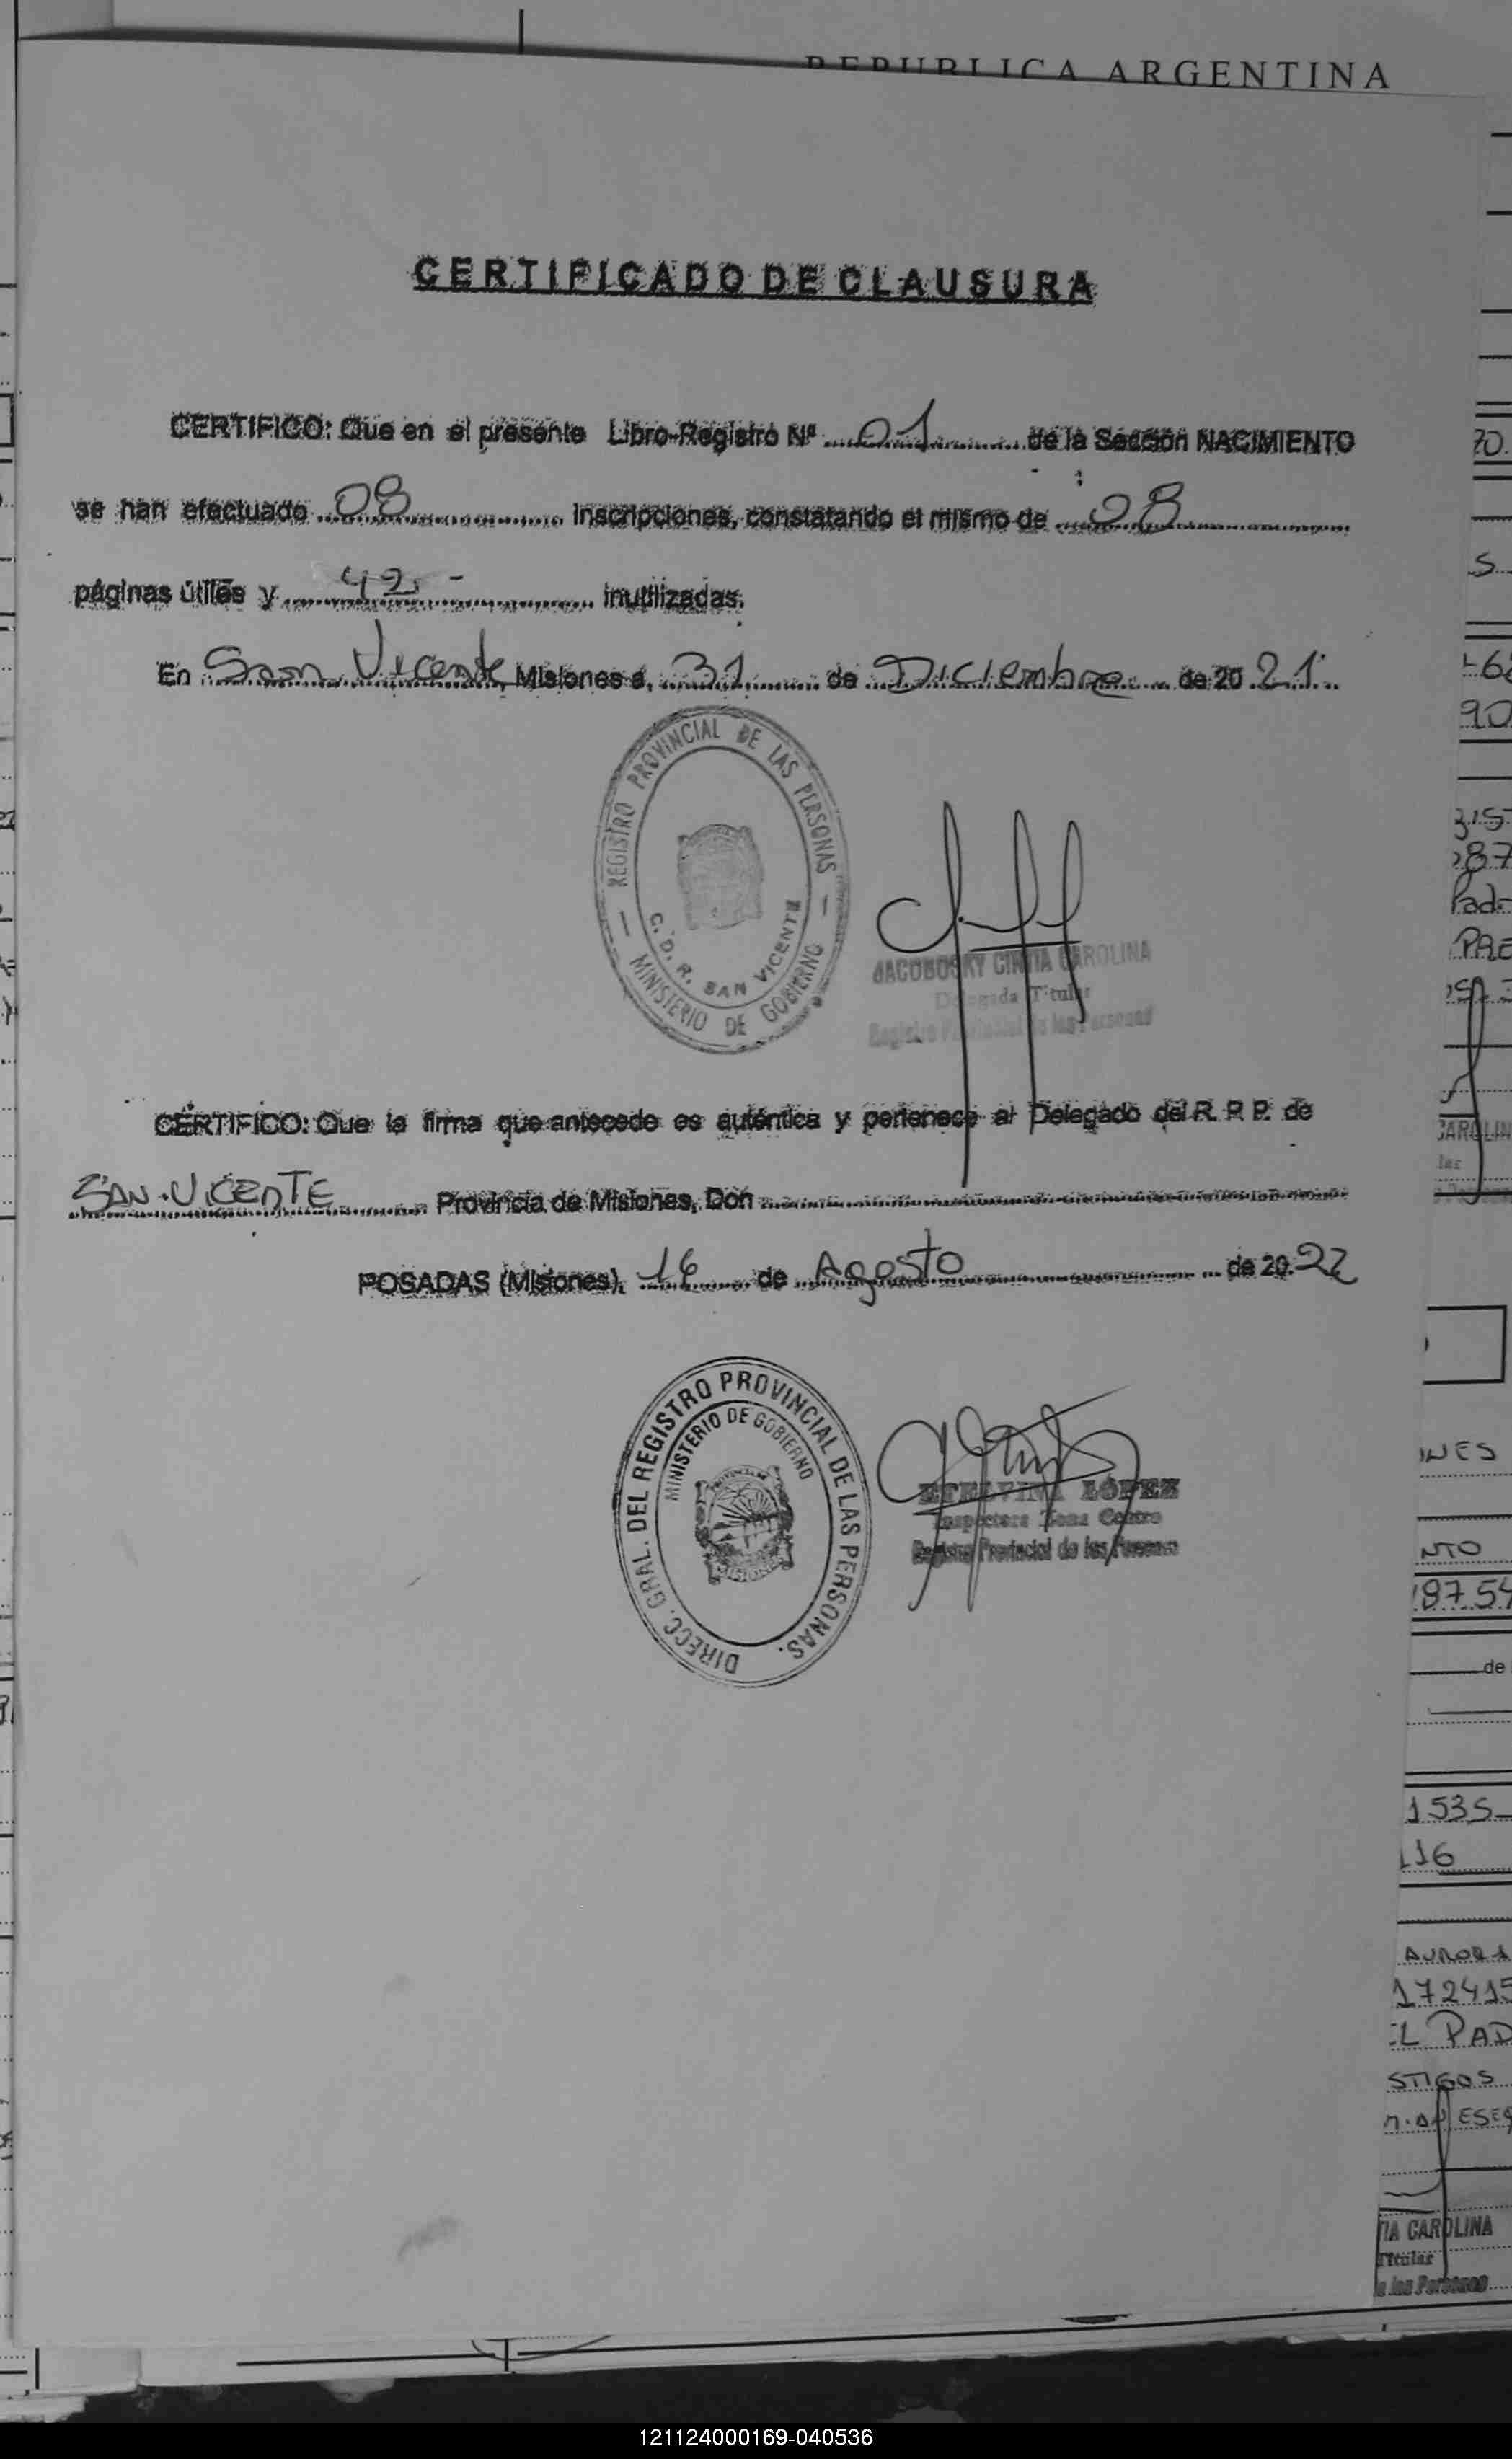 REPUBLICA ARGENTINA
CERTIFICADO DE CLAUSURA
CERTIFICO: Que en el presente Libro-Registro Nº 01 de la Sección NACIMIENTO
se han efectuado 08 inscripciones, constatando el mismo de 08
páginas útiles y 42 - inutilizadas.
En San Vicente, Misiones a, 31 de Diciembre de 20 21.
REGISTRO PROVINCIAL DE LAS PERSONAS
C. D. R. SAN VICENTE
MINISTERIO DE GOBIERNO
JACOBOSKY CINTIA CAROLINA
Delegada Titular
Registro Provincial de las Personas
CERTIFICO: Que la firma que antecede es auténtica y pertenece al Delegado del R. P. P. de
SAN VICENTE Provincia de Misiones, Don
POSADAS (Misiones), 16 de Agosto de 20 22
DIRECC. GRAL. DEL REGISTRO PROVINCIAL DE LAS PERSONAS.
MINISTERIO DE GOBIERNO
ETELVINA LÓPEZ
Inspectora Zona Centro
Registro Provincial de las Personas
70.
S
90
87
INES
NTO
8754
de
1535
116
AURORA
172415
EL PAD
STIGOS
CAROLINA
Titular
las Personas
121124000169-040536